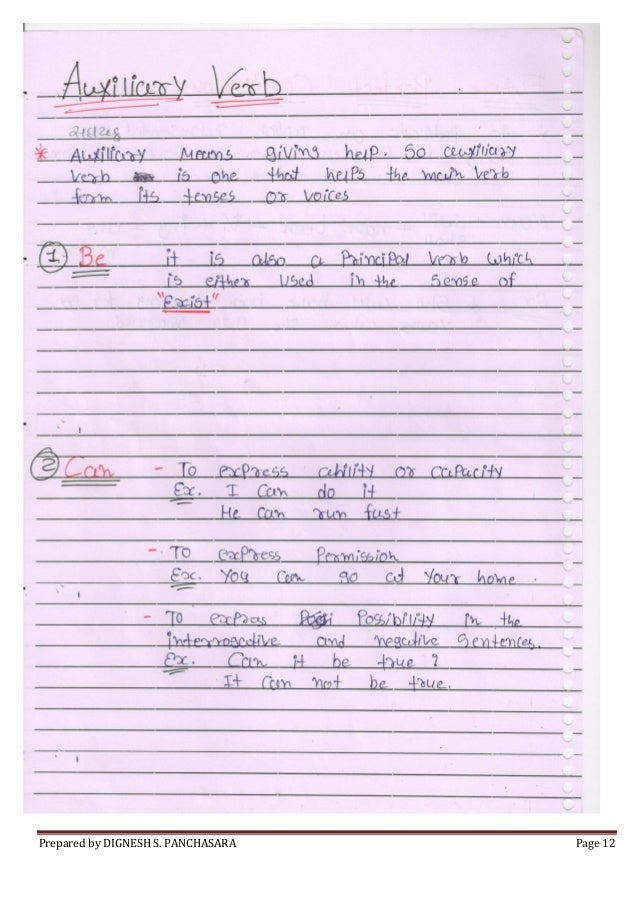 Auxiliary Verb
* Auxiliary Means giving help. So auxiliary
verb is one that helps the main verb
form its tenses or voices
1 Be it is also a Principal verb which
is either used in the sense of
"Exist"
2 Can - To express ability or capacity
Ex. I can do it
He can run fast
- To express Permission
Ex. You can go at your home.
- To expras Possibility in the
interrogative and negative sentences.
Ex. Can it be true ?
It can not be true.
Prepared by DIGNESH S. PANCHASARA Page 12